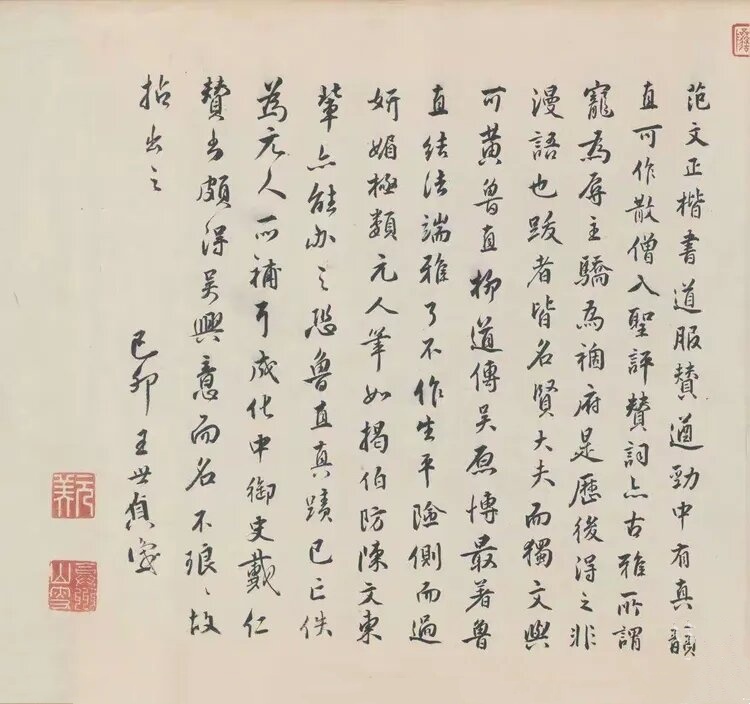 范文正楷書道服贊遒勁中有真韻
直可作散僧入聖評贊詞亦古雅所謂
寵為辱主驕為禍府是歷後得之非
漫語也跋者皆名賢大夫而獨文與
可黃魯直柳道傳吳原博最著魯
直結法端雅了不作生平險側而過
妍媚極類元人筆如揭伯防陳文東
輩亦能办之恐魯直真蹟已亡佚
為元人所補耳成化中御史戴仁
贊書頗得吳興意而名不琅〻故
拈出之
己卯王世貞識
元美